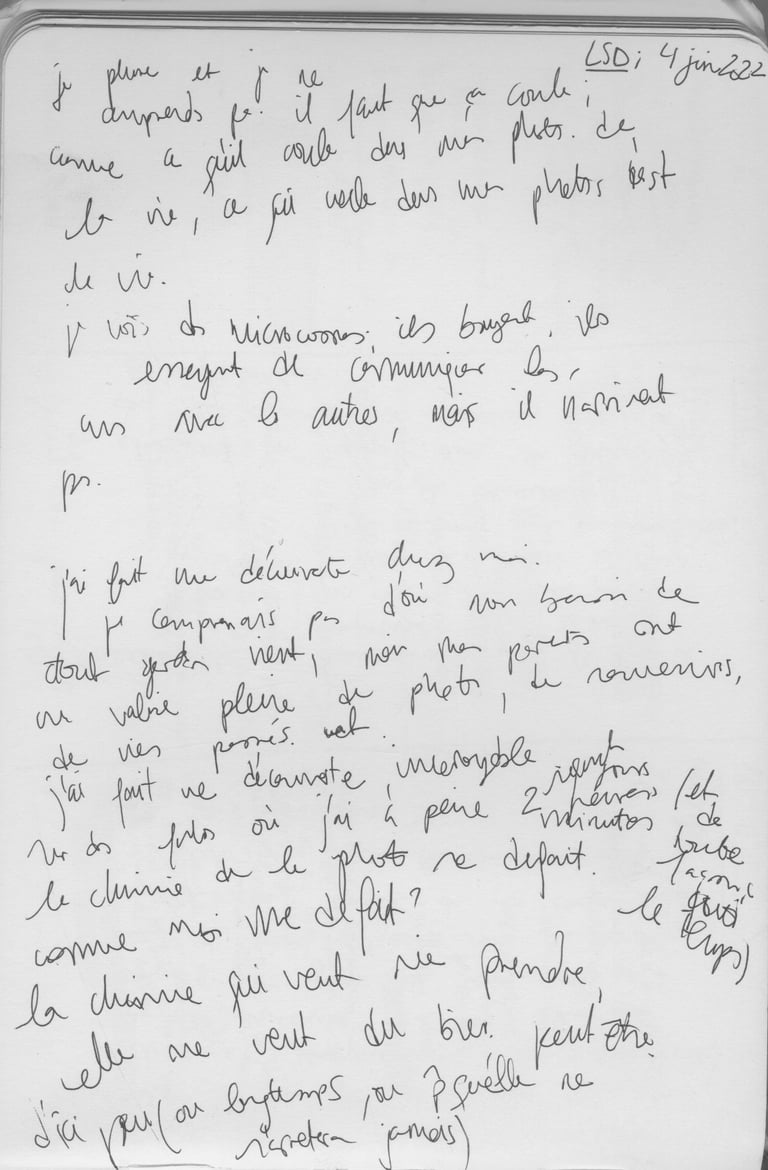 LSD; 4 juin 2022
je pleure et je ne
comprends pas. il faut que ça coule;
comme ce qu'il coule dans mes photos. de
la vie, ce qui coule dans mes photos c'est
de vie.
je vois des microcosmes, ils bougent, ils
essayent de communiquer les
uns avec les autres, mais il n'arrivent
pas.
j'ai fait une découverte chez moi.
je comprenais pas d'où mon besoin de
tout garder vient, mais mes parents ont
une valise pleine de photos, de souvenirs,
de vies passées.
j'ai fait une découverte incroyable
sur des photos où j'ai à peine 2 heures
minutes (et de toute façon, le temps)
la chimie de la photo se défait.
comme moi je me défait?
la chimie qui vient me prendre,
elle me veut du bien. peut être
d'ici peu (ou longtemps, ou qu'elle ne
s'arretera jamais)